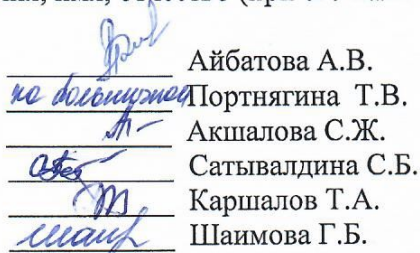 Айбатова А.В.
на больничном Портнягина Т.В.
Акшалова С.Ж.
Сатывалдина С.Б.
Каршалов Т.А.
Шаимова Г.Б.